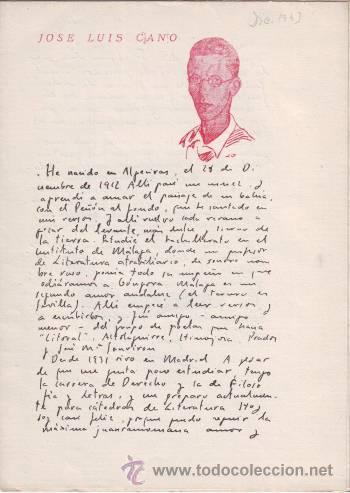 Dic. 1943
JOSE LUIS CANO
. He nacido en Algeciras, el 28 de Di
ciembre de 1912 Allí pasé mi niñez, y
aprendí a amar el paisaje de su bahía,
con el Peñón al fondo, que he cantado en
mis versos. Y allí vuelvo cada verano a
gozar del levante, más dulce
la tierra. Estudié el bachillerato en el
Instituto de Málaga, donde un profesor
de Literatura atrabiliario, de sonoro nom
bre ruso, ponía todo su empeño en que
odiáramos a Góngora Málaga es mi
segundo amor andaluz (el tercero es
Sevilla). Allí empecé a leer versos y
a escribirlos, y fuí amigo - amigo
menor - del grupo de poetas que hacía
"Litoral", Altolaguirre, Hinojosa, Prados
y José Mª Souviron.
Desde 1931 vivo en Madrid A pesar
de que me gusta poco estudiar, tengo
la carrera de Derecho y la de Filoso
fía y letras, y me preparo actualmen
te para cátedras de Literatura Hoy
soy casi feliz, porque puedo seguir la
máxima juanramoniana amor y
todocoleccion.net
www.todocoleccion.net